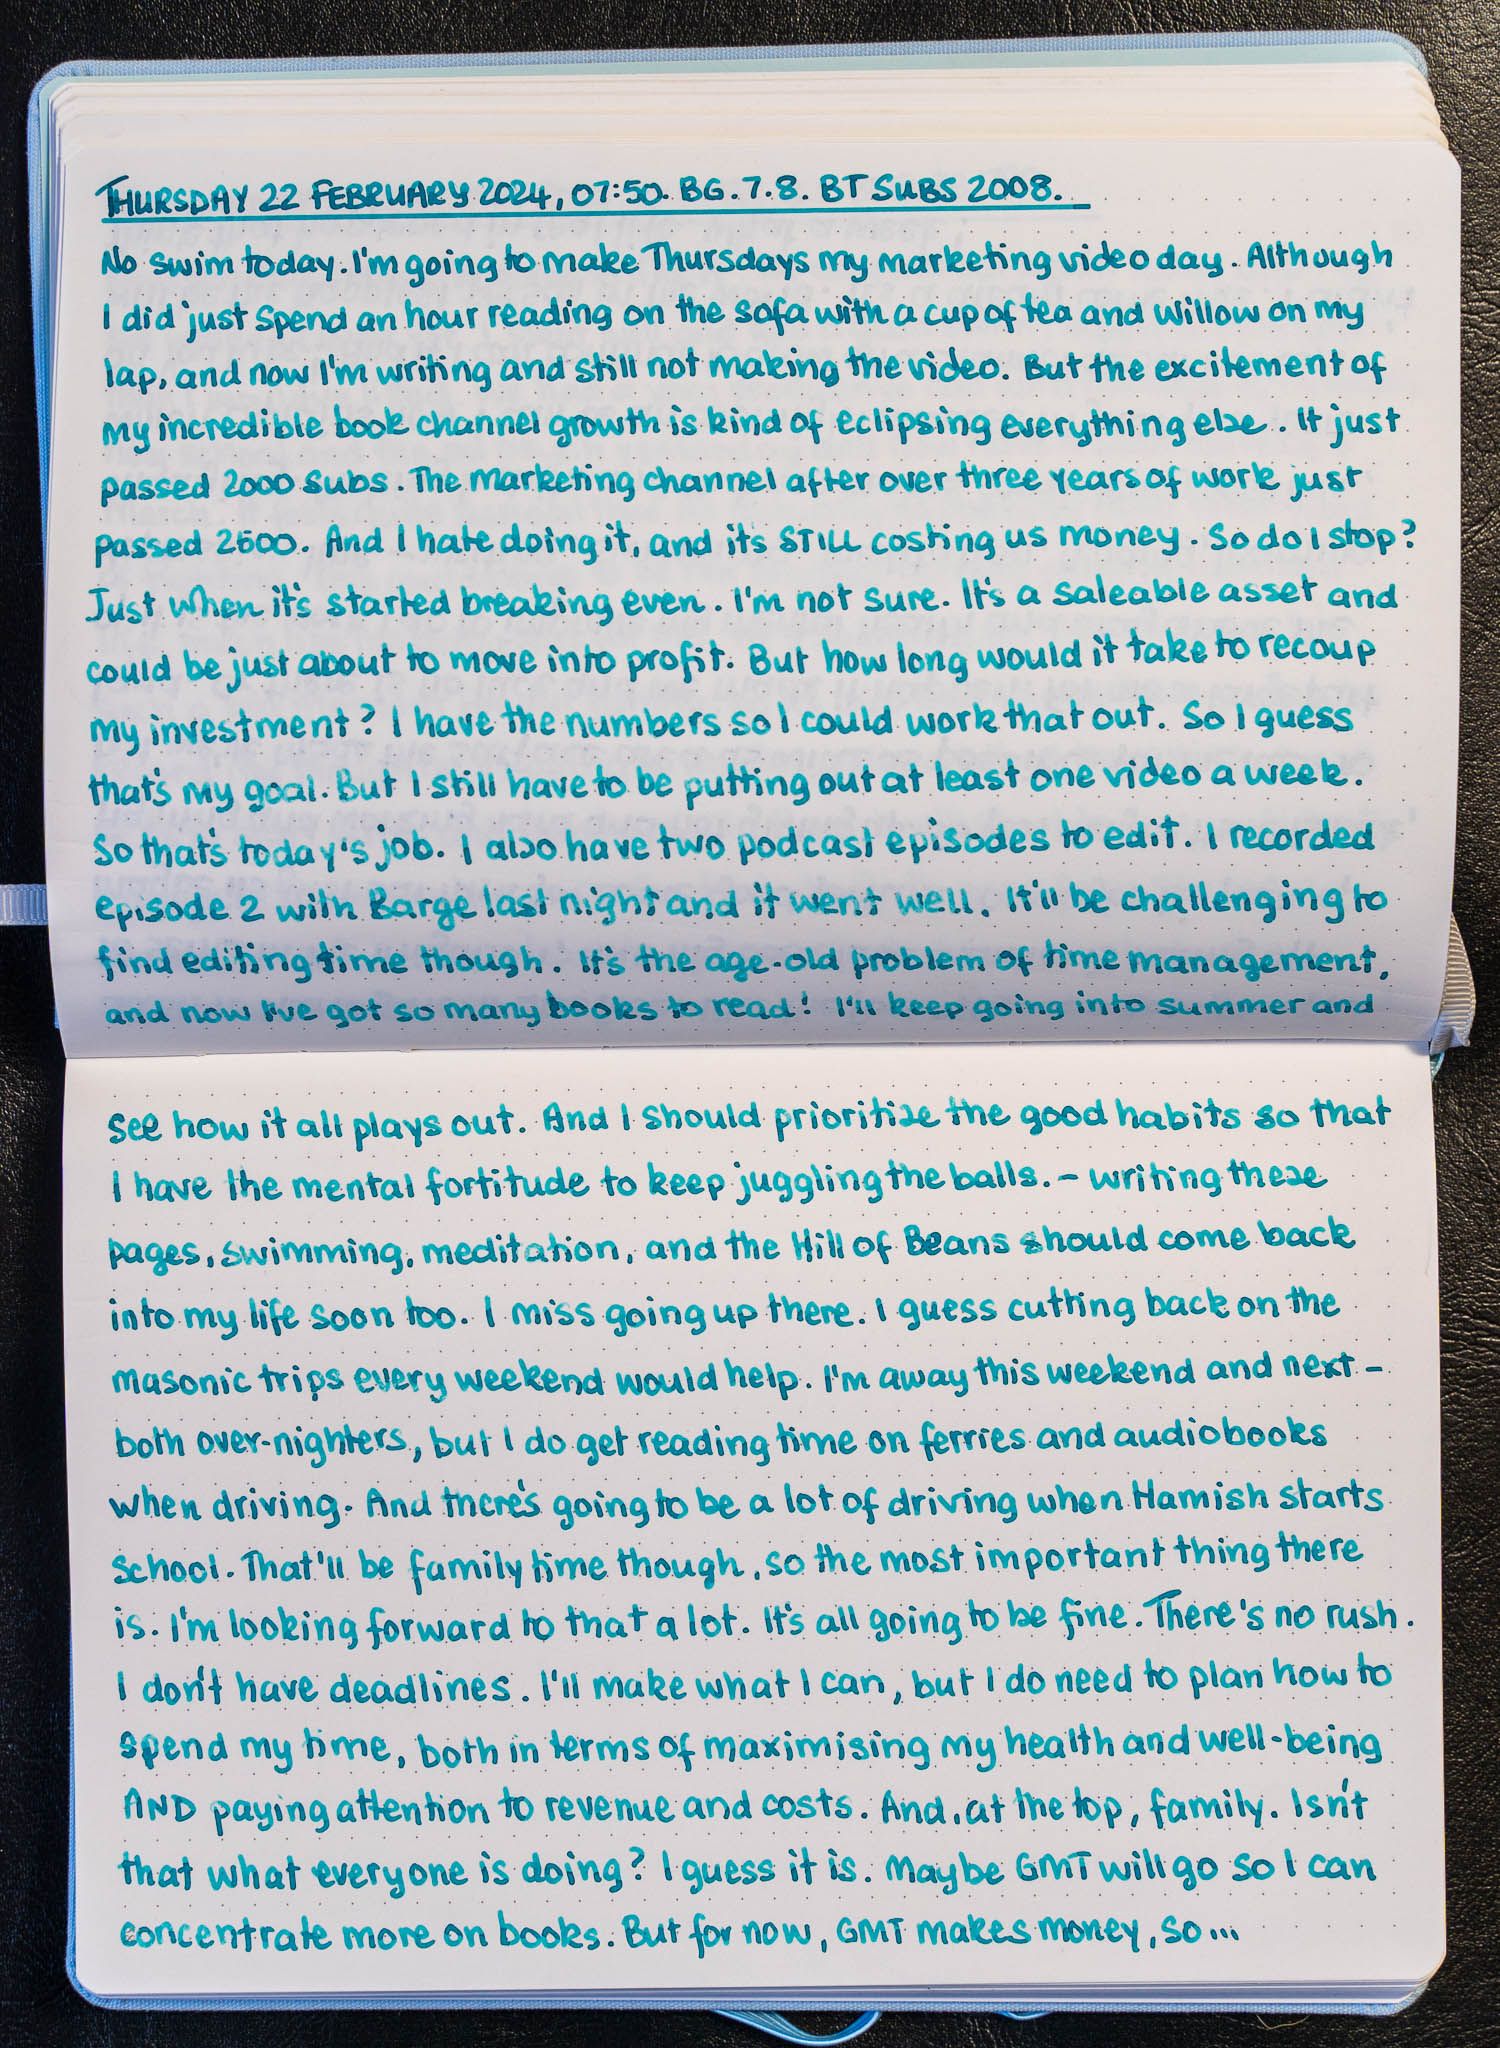 THURSDAY 22 FEBRUARY 2024, 07:50. BG. 7.8. BT SUBS 2008.
No swim today. I'm going to make Thursdays my marketing video day. Although
I did just spend an hour reading on the sofa with a cup of tea and Willow on my
lap, and now I'm writing and still not making the video. But the excitement of
my incredible book channel growth is kind of eclipsing everything else. It just
passed 2000 subs. The marketing channel after over three years of work just
passed 2500. And I hate doing it, and it's STILL costing us money. So do I stop?
Just when it's started breaking even. I'm not sure. It's a saleable asset and
could be just about to move into profit. But how long would it take to recoup
my investment? I have the numbers so I could work that out. So I guess
that's my goal. But I still have to be putting out at least one video a week.
So that's today's job. I also have two podcast episodes to edit. I recorded
episode 2 with Barge last night and it went well. It'll be challenging to
find editing time though. It's the age-old problem of time management,
and now I've got so many books to read! I'll keep going into summer and
see how it all plays out. And I should prioritize the good habits so that
I have the mental fortitude to keep juggling the balls. - writing these
pages, swimming, meditation, and the Hill of Beans should come back
into my life soon too. I miss going up there. I guess cutting back on the
masonic trips every weekend would help. I'm away this weekend and next -
both over-nighters, but I do get reading time on ferries and audiobooks
when driving. And there's going to be a lot of driving when Hamish starts
school. That'll be family time though, so the most important thing there
is. I'm looking forward to that a lot. It's all going to be fine. There's no rush.
I don't have deadlines. I'll make what I can, but I do need to plan how to
spend my time, both in terms of maximising my health and well-being
AND paying attention to revenue and costs. And, at the top, family. Isn't
that what everyone is doing? I guess it is. Maybe GMT will go so I can
concentrate more on books. But for now, GMT makes money, so...